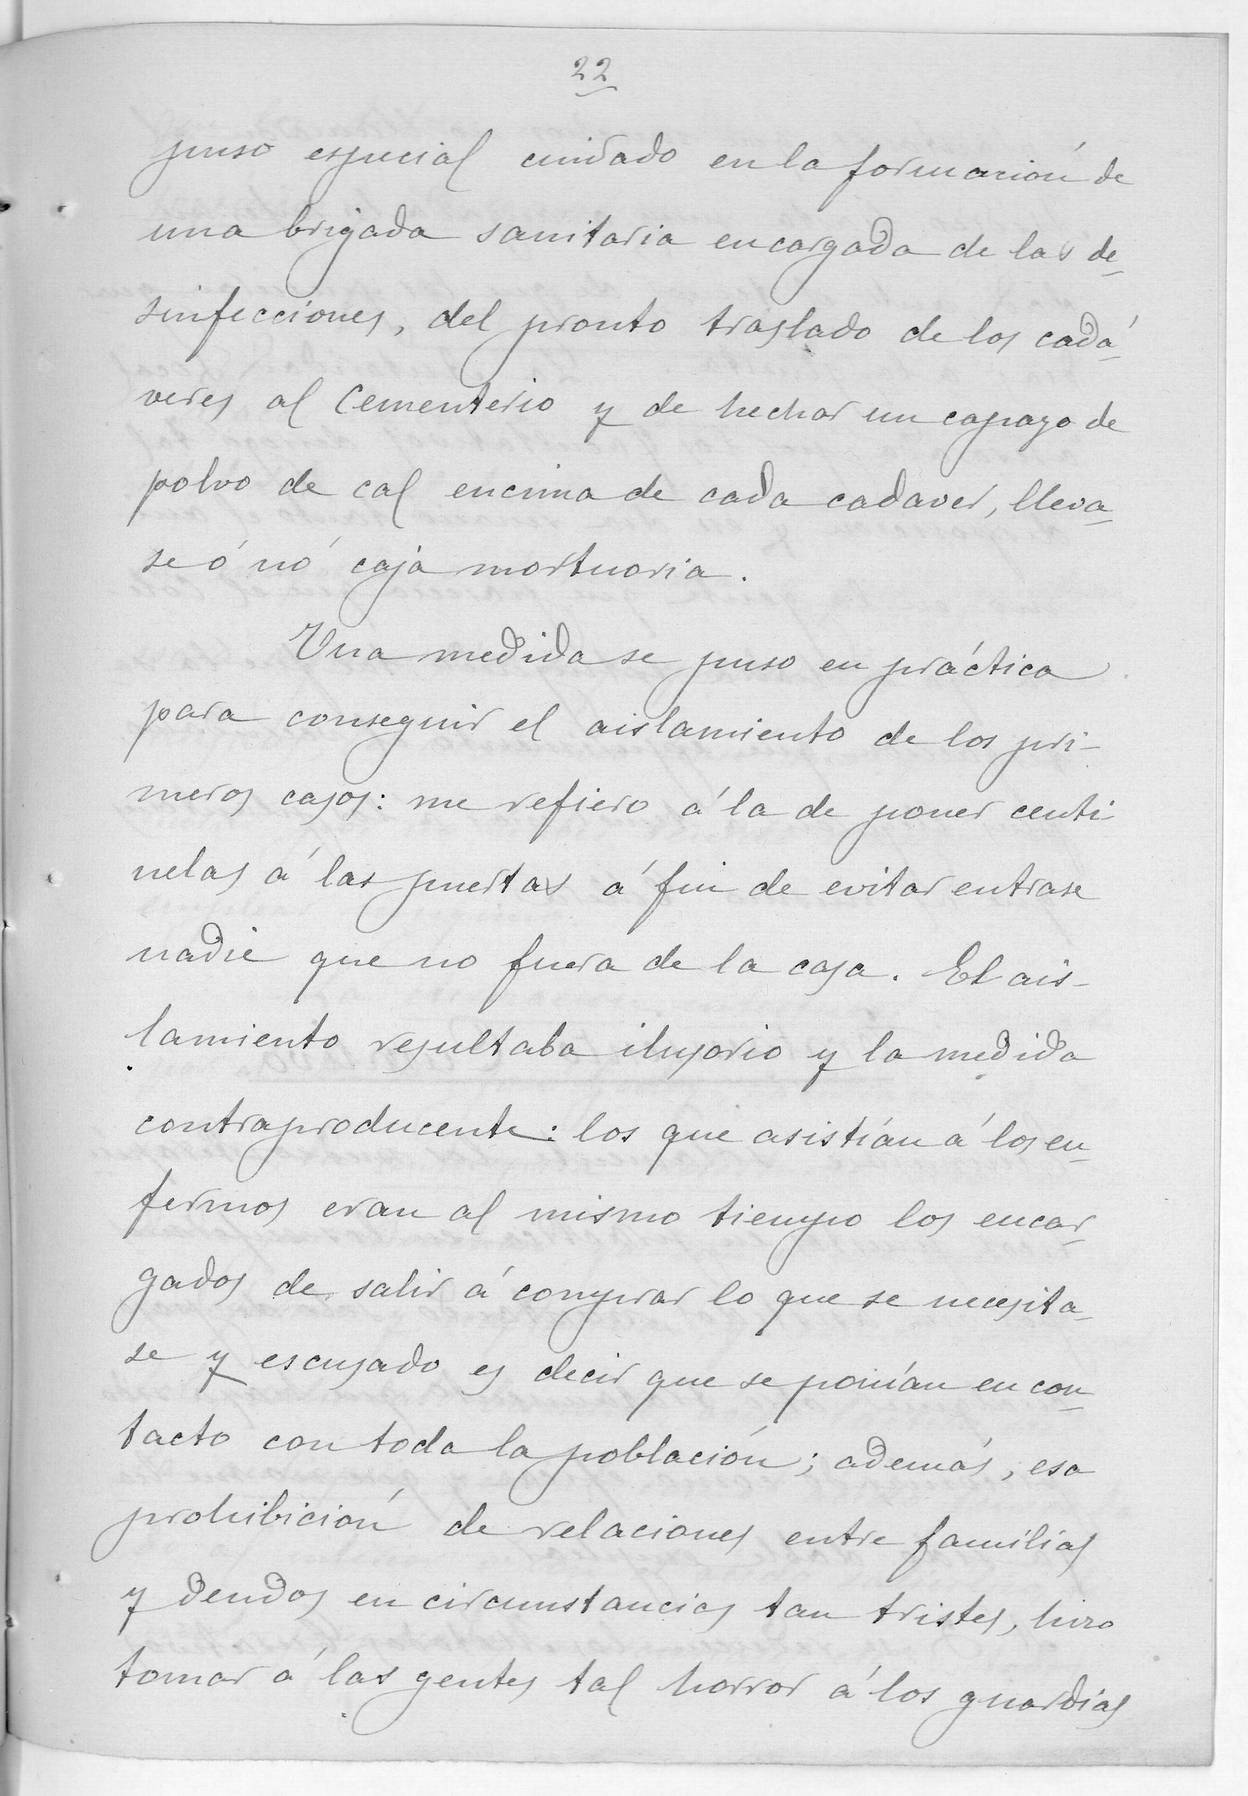 22
puso especial cuidado en la formación de
una brigada sanitaria encargada de las de-
sinfecciones, del pronto traslado de los cadá-
veres al Cementerio y de hechar un capazo de
polvo de cal encima de cada cadaver, lleva-
se ó nó caja mortuoria.
Una medida se puso en práctica
para conseguir el aislamiento de los pri-
meros casos: me refiero á la de poner centi-
nelas á las puertas á fin de evitar entrase
nadie que no fuera de la casa. El ais-
lamiento resultaba ilusorio y la medida
contraproducente: los que asistían á los en-
fermos eran al mismo tiempo los encar-
gados de salir á comprar lo que se necesita-
se y escusado es decir que se ponían en con-
tacto con toda la población; además, esa
prohibición de relaciones entre familias
y deudos en circunstancias tan tristes, hizo
tomar á las gentes tal horror á los guardias